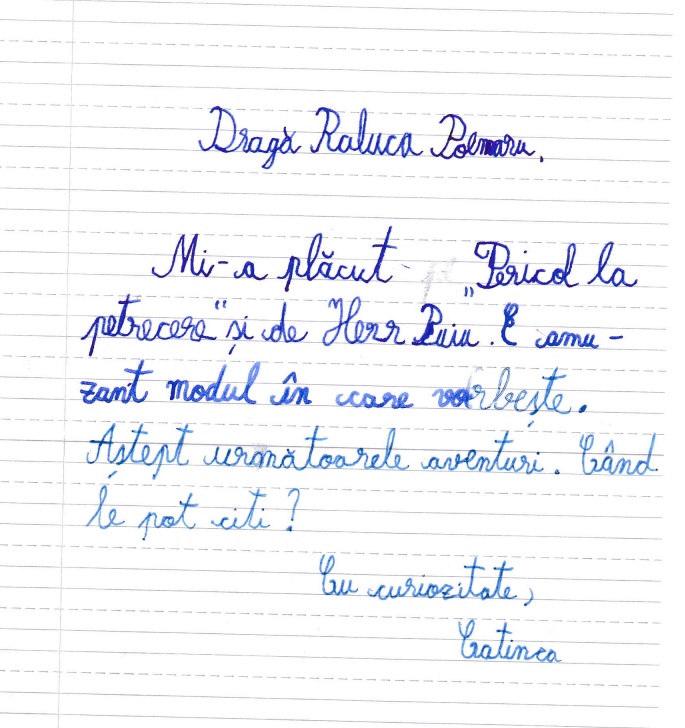 Dragă Raluca Poenaru,
Mi-a plăcut „Pericol la
petrecere“ și de Herr Puiu. E amu-
zant modul în care vorbește.
Aștept următoarele aventuri. Când
le pot citi?
Cu curiozitate,
Catinca